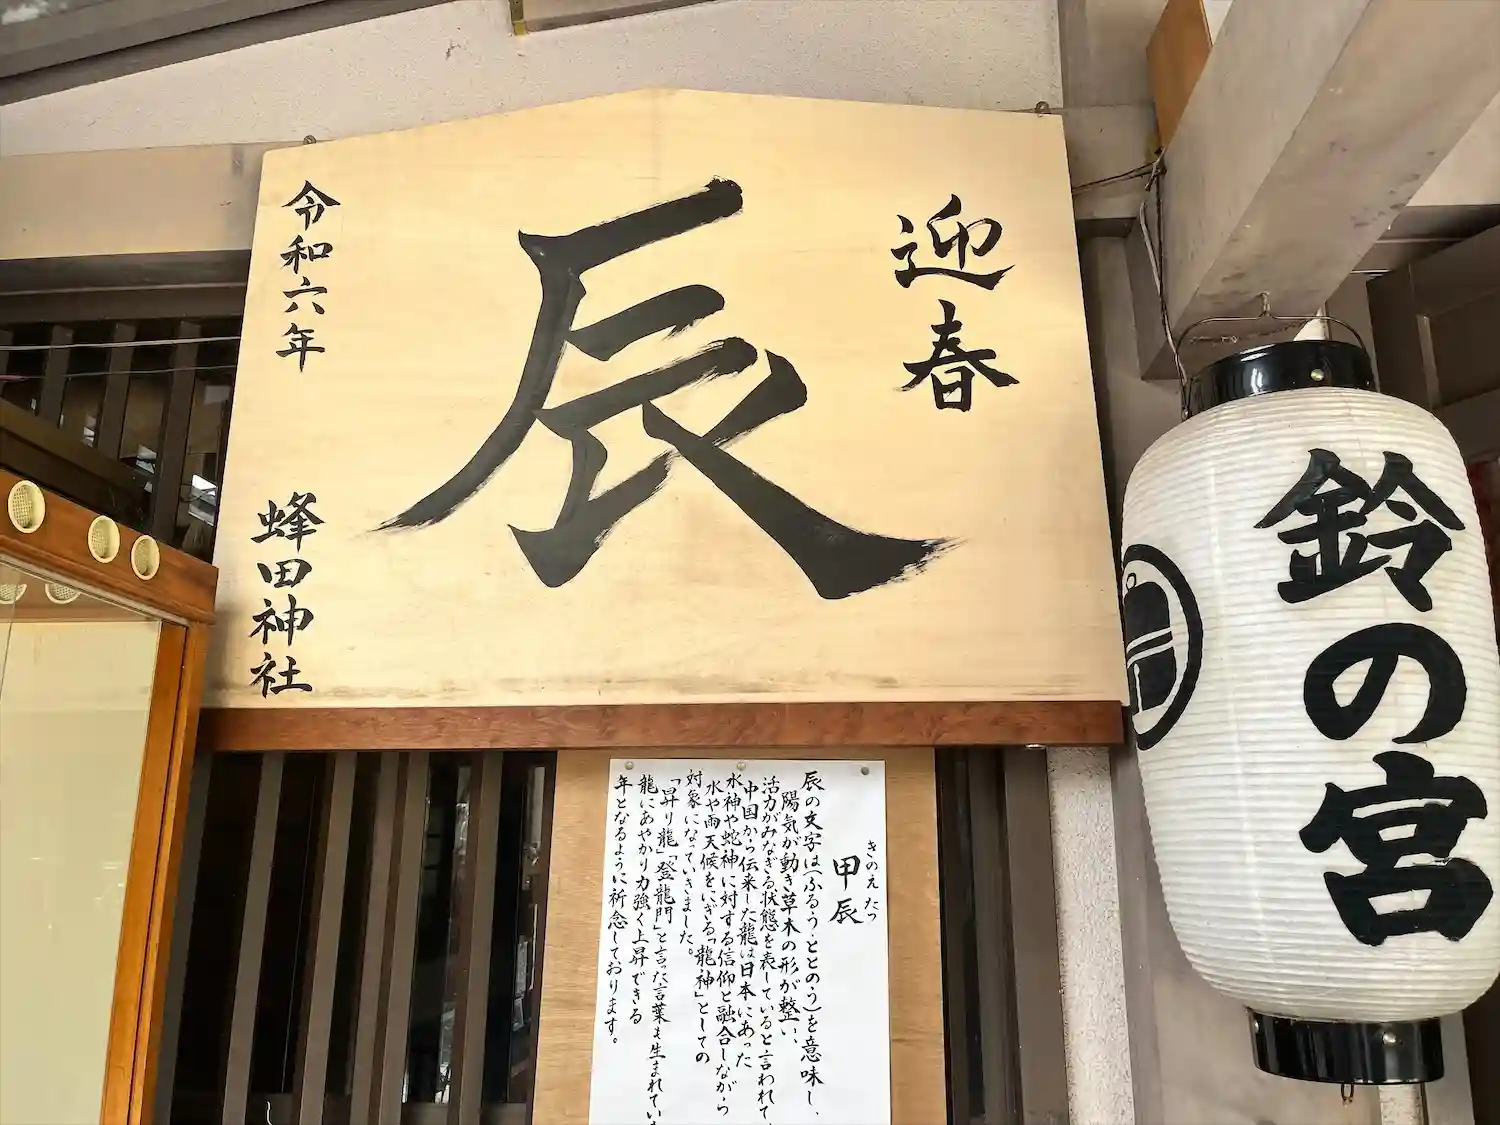 迎春
辰
令和六年
蜂田神社
鈴の宮
きのえ たつ
甲辰
辰の文字は(ふるう・ととのう)を意味し、
陽気が動き草木の形が整い、
活力がみなぎる状態を表していると言われて
中国から伝来した龍は日本にあった
水神や蛇神に対する信仰と融合しながら
水や雨天候をにぎる「龍神」としての
対象になっていきました。
「昇り龍」「登龍門」と言った言葉も生まれてい
龍にあやかり力強く上昇できる
年となるように祈念しております。